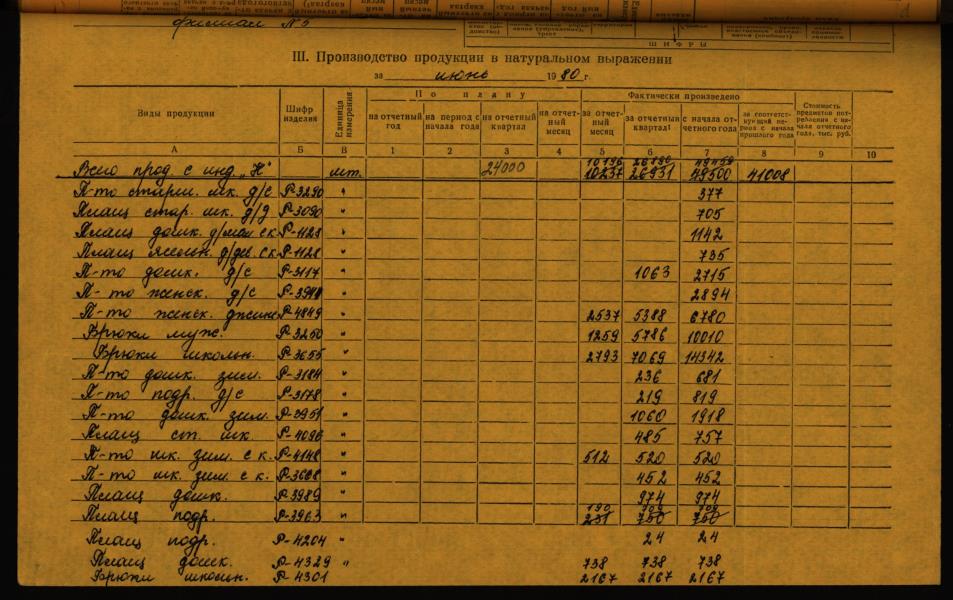 филиал №5
ШИФРЫ
III. Производство продукции в натуральном выражении
за июнь 1980 г.
Виды продукции Шифр изделия Единица измерения По плану Фактически произведено Стоимость предметов потребления с начала отчетного года, тыс. руб.
на отчетный год на период с начала года на отчетный квартал на отчетный месяц за отчетный месяц за отчетный квартал с начала отчетного года за соответствующий период с начала прошлого года
А Б В 1 2 3 4 5 6 7 8 9 10
10196 26890 49459
Всего прод. с инд. „Н" шт. 24000 10237 26931 49500 41008
П-то старш. шк. д/с Р-3290 " 377
Плащ стар. шк. д/д Р-3090 " 705
Плащ дошк. д/мал ск. Р-1128 " 1142
Плащ ясельн. д/дев. ск. Р-1128 " 735
П-то дошк. д/с Р-3117 " 1063 2715
П-то женск. д/с " 2894
П-то женск. джинс Р-4849 " 2537 5388 6780
Брюки муж. Р-3250 " 1259 5786 10010
Брюки школьн. Р-3655 " 2793 7069 14342
П-то дошк. зим. Р-3184 " 236 681
П-то подр. д/с Р-3178 " 219 819
П-то дошк. зим. Р-3951 " 1060 1918
Плащ ст. шк. Р-4096 " 485 757
П-то шк. зим. с к. Р-4148 " 512 520 520
П-то шк. зим. с к. Р-3608 " 452 452
Плащ дошк. Р-3989 " 974 974
190 709 709
Плащ подр. Р-3963 " 231 750 750
Плащ подр. Р-4204 " 24 24
Плащ дошк. Р-4329 " 738 738 738
Брюки школьн. Р-4301 2167 2167 2167